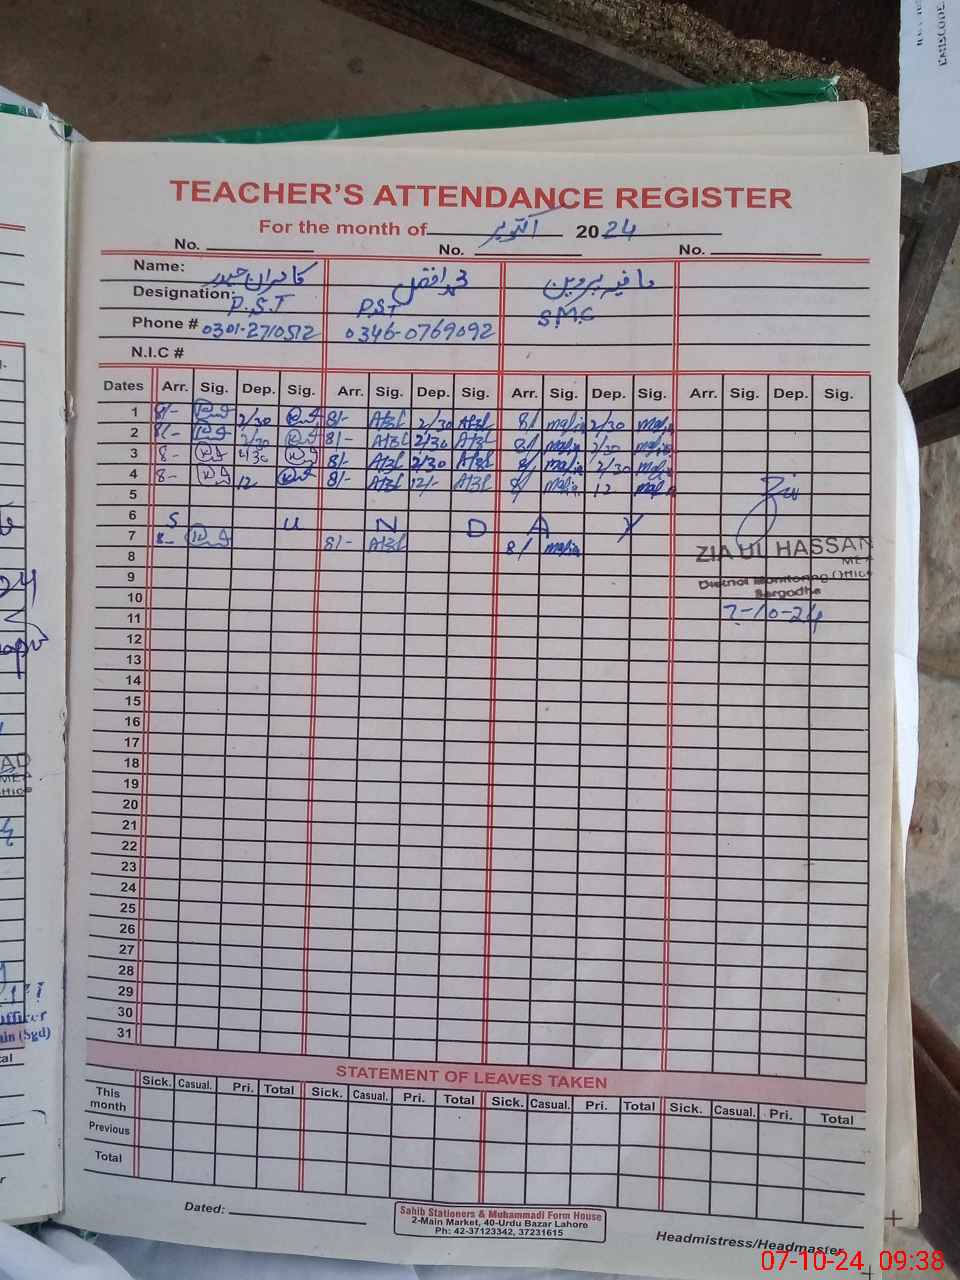 TEACHER'S ATTENDANCE REGISTER
For the month of اکتوبر 2024
No. No. No.
Name: کامران حیدر محمد افضل مافیہ پروین
Designation: P.S.T P.S.T S.M.C
Phone # 0301-2710512 0346-0769092
N.I.C #
Dates Arr. Sig. Dep. Sig. Arr. Sig. Dep. Sig. Arr. Sig. Dep. Sig. Arr. Sig. Dep. Sig.
1 8/- 2/30 8/- Afzl 2/30 Afzl 8/ mafia 2/30 mafia
2 8/- 2/30 8/- Afzl 2/30 Afzl 8/ mafia 2/30 mafia
3 8- 2/30 8/- Afzl 2/30 Afzl 8/ mafia 2/30 mafia
4 8- 12 8/- Afzl 12/- Afzl 8/ mafia 12 mafia
5
6 S U N D A Y
7 8- 8/- Afzl 8/ mafia
8
9
10
11
12
13
14
15
16
17
18
19
20
21
22
23
24
25
26
27
28
29
30
31
ZIA UL HASSAN
MEA
District Monitoring Office
Sargodha
7-10-24
STATEMENT OF LEAVES TAKEN
Sick. Casual. Pri. Total Sick. Casual. Pri. Total Sick. Casual. Pri. Total Sick. Casual. Pri. Total
This month
Previous
Total
Dated:
Sahib Stationers & Muhammadi Form House
2-Main Market, 40-Urdu Bazar Lahore
Ph: 42-37123342, 37231615
Headmistress/Headmaster
07-10-24 09:38